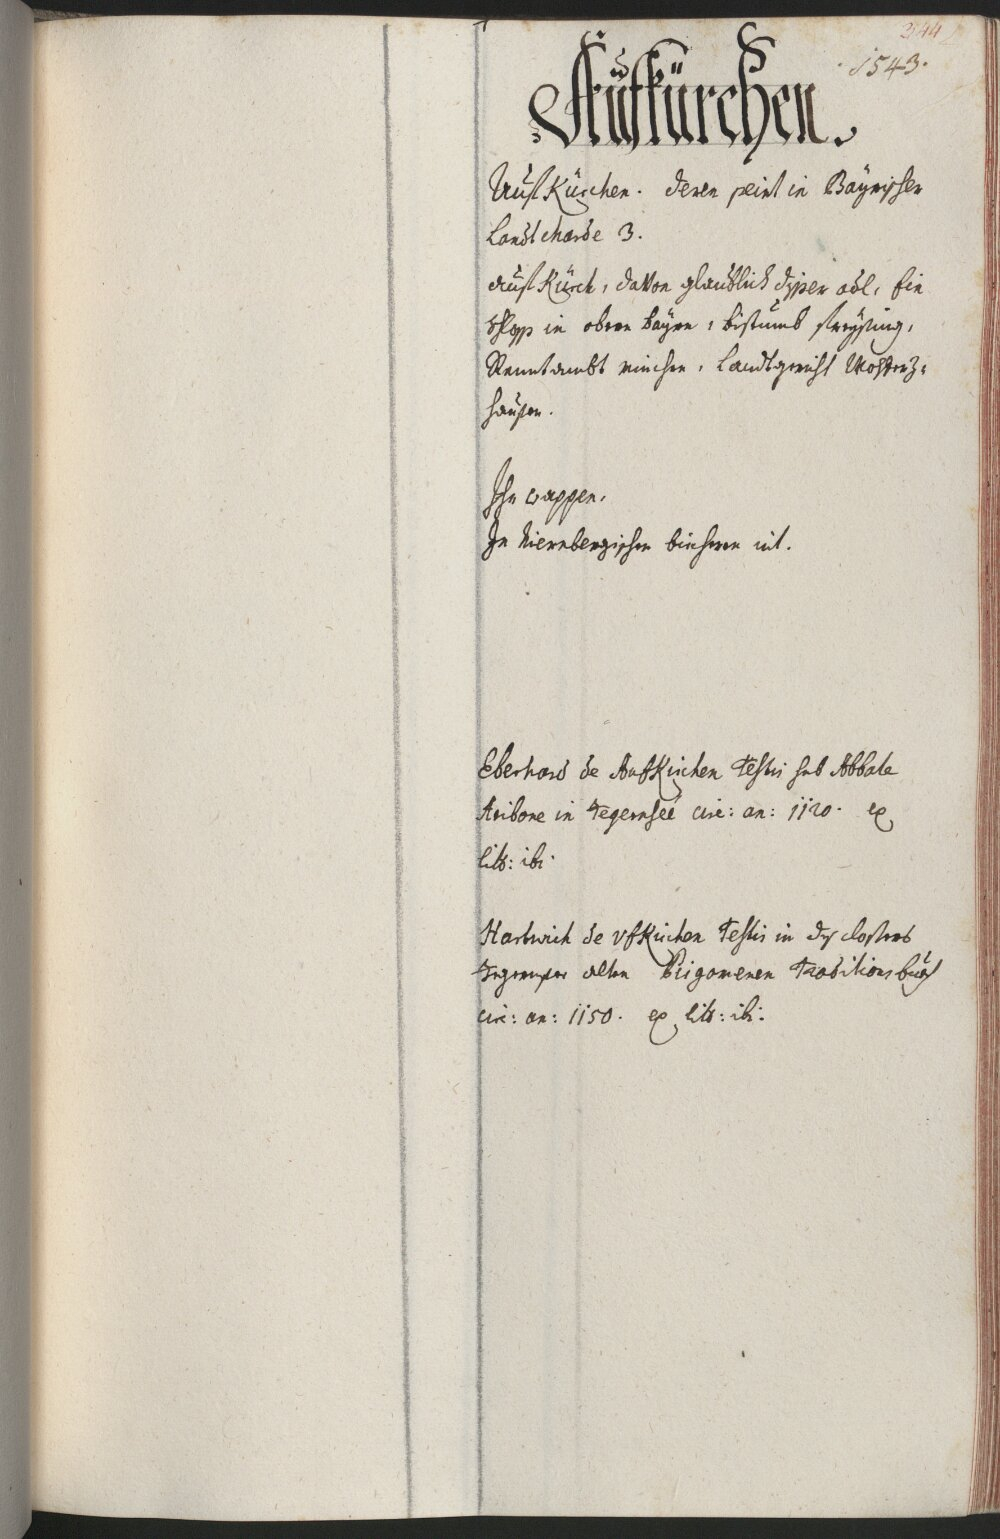 344
1543.
Aufkürchen.
Aufkürchen. deren seint in Bayrischer
Landt charde 3.
aufkürch, davon glaublich diser adl, ein
in obern bayrn, bistumb freysing,
Renntambt minchen, Landtgericht Wolferz=
hausen.
Ihr wappen.
In Niernbergischen biechern nit.
Eberhard de Aufkirchen testis sub Abbate
Aribone in Tegernseé circ: an: 1120. ex
lits: ibi.
Hartwich de Vfkirchen testis in des closters
Tegernsee alten Pirgomenen Traditionsbuch
circ: an: 1150. ex lits: ibi.